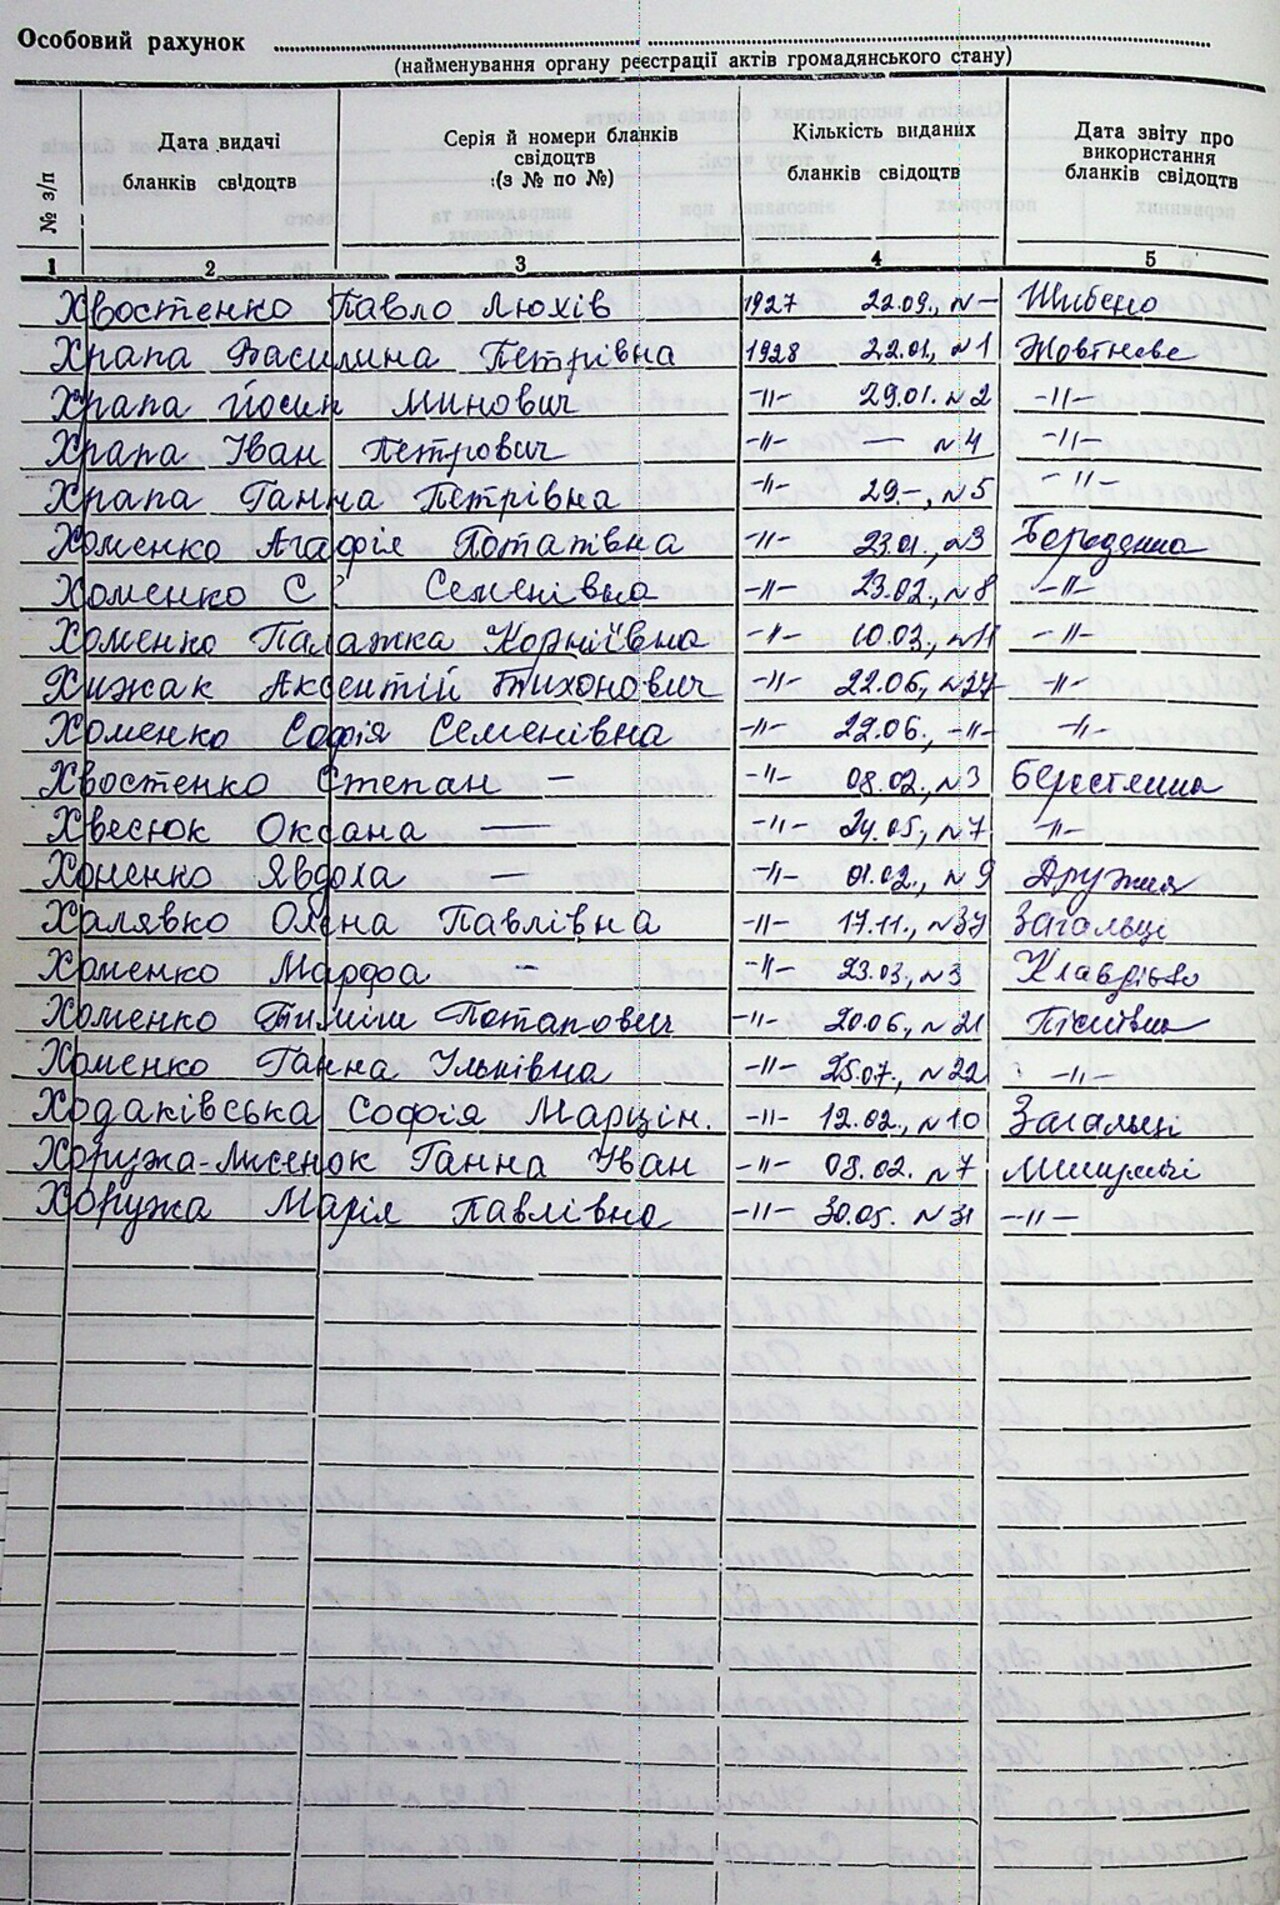 Особовий рахунок
(найменування органу реєстрації актів громадянського стану)
№ з/п
Дата видачі бланків свідоцтв
Серія й номери бланків свідоцтв (з № по №)
Кількість виданих бланків свідоцтв
Дата звіту про використання бланків свідоцтв
1 2 3 4 5
Хвостенко Павло Люхів 1927 22.09., №— Шибено
Храпа Василина Петрівна 1928 22.01., №1 Жовтневе
Храпа Йосип Минович -"- 29.01. №2 -"-
Храпа Іван Петрович -"- — №4 -"-
Храпа Ганна Петрівна -"- 29.-, №5 -"-
Хоменко Агафія Потапівна -"- 23.01., №3 Бородянка
Хоменко С ? Семенівна -"- 23.02., №8 -"-
Хоменко Палажка Корніївна -"- 10.03., №11 -"-
Хижак Аксентій Тихонович -"- 22.06, №37 -"-
Хоменко Софія Семенівна -"- 22.06., -"- -"-
Хвостенко Степан — -"- 08.02., №3 Берестянка
Хвесюк Оксана — -"- 24.05., №7 -"-
Хоненко Явдоха — -"- 01.02., №9 Дружня
Халявко Олена Павлівна -"- 17.11., №37 Загальці
Хоменко Марфа - -"- 23.03., №3 Клавдієво
Хоменко Тиміш Потапович -"- 20.06., №21 Пісківка
Хоменко Ганна Ульнівна -"- 25.07., №22 -"-
Ходаківська Софія Марцін. -"- 12.02., №10 Загальці
Хоружа-Лисенок Ганна Іван -"- 08.02. №7 Микуличі
Хоружа Марія Павлівна -"- 30.05. №31 -"-